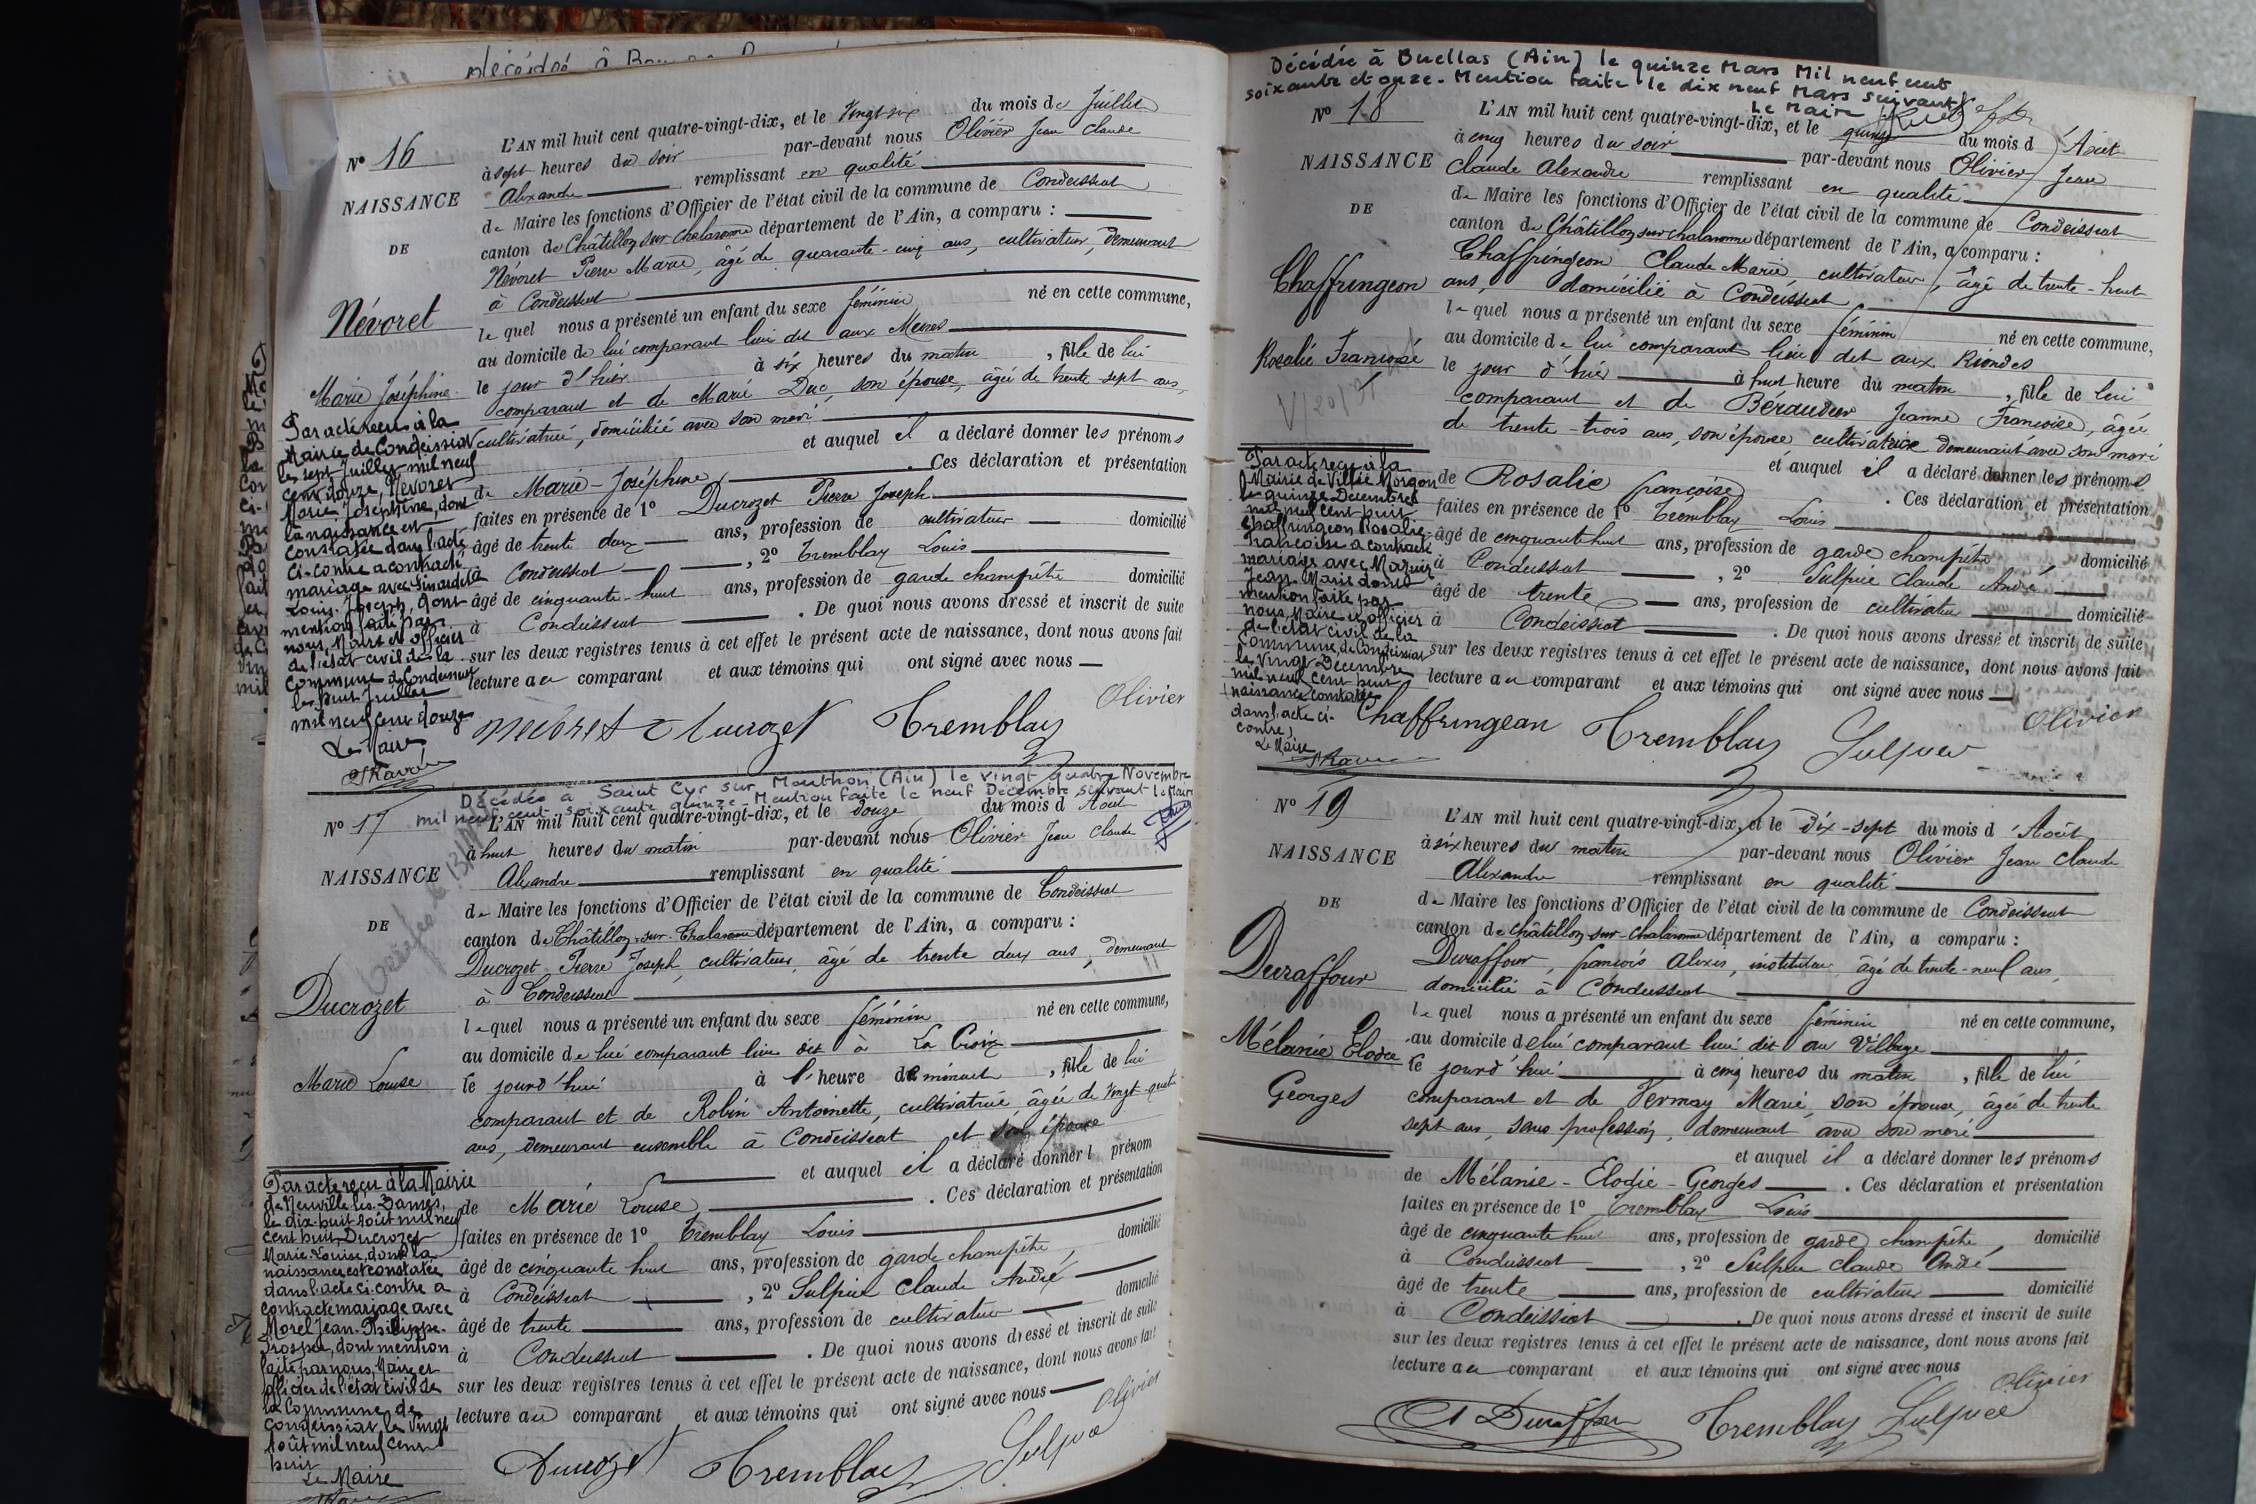 Nº 16
NAISSANCE
DE
Névoret
Marie Joséphine
L'AN mil huit cent quatre-vingt-dix, et le Vingt-six du mois de Juillet
à sept heures du soir par-devant nous Olivier Jean Claude
Alexandre remplissant en qualité
de Maire les fonctions d'Officier de l'état civil de la commune de Condeissiat
canton de Châtillon sur Chalaronne département de l'Ain, a comparu :
Névoret Pierre Marie, âgé de quarante-cinq ans, cultivateur, demeurant
à Condeissiat
lequel nous a présenté un enfant du sexe féminin né en cette commune,
au domicile de lui comparant lieu dit aux Messes
le jour d'hier à six heures du matin, fille de lui
comparant et de Marie Duc, son épouse, âgée de trente-sept ans,
cultivatrice, domiciliée avec son mari
et auquel il a déclaré donner les prénoms
de Marie-Joséphine. Ces déclaration et présentation
faites en présence de 1º Ducrozet Pierre Joseph
âgé de trente deux ans, profession de cultivateur domicilié
à Condeissiat, 2º Tremblay Louis
âgé de cinquante-huit ans, profession de garde champêtre domicilié
à Condeissiat. De quoi nous avons dressé et inscrit de suite
sur les deux registres tenus à cet effet le présent acte de naissance, dont nous avons fait
lecture au comparant et aux témoins qui ont signé avec nous
Nevoret Ducrozet Tremblay Olivier
Par acte reçu à la
Mairie de Condeissiat
le sept Juillet mil neuf
cent douze, Névoret
Marie Joséphine, dont
la naissance est
constatée dans l'acte
ci-contre a contracté
mariage avec
Louis Joseph, dont
mention faite par
nous, Maire et officier
de l'état civil de la
commune de Condeissiat
le huit Juillet
mil neuf cent douze
Le Maire
Décédée à Saint Cyr sur Menthon (Ain) le vingt quatre Novembre
mil neuf cent soixante quinze - Mention faite le neuf Décembre suivant - Le Maire
Nº 17
NAISSANCE
DE
Ducrozet
Marie Louise
L'AN mil huit cent quatre-vingt-dix, et le douze du mois d'Août
à huit heures du matin par-devant nous Olivier Jean Claude
Alexandre remplissant en qualité
de Maire les fonctions d'Officier de l'état civil de la commune de Condeissiat
canton de Châtillon-sur-Chalaronne département de l'Ain, a comparu :
Ducrozet Pierre Joseph, cultivateur, âgé de trente deux ans, demeurant
à Condeissiat
lequel nous a présenté un enfant du sexe féminin né en cette commune,
au domicile de lui comparant lieu dit à La Croix
le jourd'hui à l'heure de minuit, fille de lui
comparant et de Robin Antoinette, cultivatrice âgée de vingt-quatre
ans, demeurant ensemble à Condeissiat et son épouse
et auquel il a déclaré donner l prénom
de Marie Louise. Ces déclaration et présentation
faites en présence de 1º Tremblay Louis
âgé de cinquante huit ans, profession de garde champêtre domicilié
à Condeissiat, 2º Sulpice Claude André
âgé de trente ans, profession de cultivateur domicilié
à Condeissiat. De quoi nous avons dressé et inscrit de suite
sur les deux registres tenus à cet effet le présent acte de naissance, dont nous avons fait
lecture au comparant et aux témoins qui ont signé avec nous
Ducrozet Tremblay Sulpice Olivier
Par acte reçu à la Mairie
de Neuville-les-Dames,
le dix-huit août mil neuf
cent huit, Ducrozet
Marie-Louise, dont la
naissance est constatée
dans l'acte ci-contre a
contracté mariage avec
Morel Jean-Philippe-
Prosper, dont mention
faite par nous, Maire et
officier de l'état civil de
la Commune de
Condeissiat le vingt
août mil neuf cent
huit
Le Maire
Décédée à Buellas (Ain) le quinze Mars Mil neuf cent
soixante et onze. Mention faite le dix neuf Mars suivant
Le Maire
Nº 18
NAISSANCE
DE
Chaffringeon
Rosalie Françoise
L'AN mil huit cent quatre-vingt-dix, et le quinze du mois d'Août
à cinq heures du soir par-devant nous Olivier Jean
Claude Alexandre remplissant en qualité
de Maire les fonctions d'Officier de l'état civil de la commune de Condeissiat
canton de Châtillon sur Chalaronne département de l'Ain, a comparu :
Chaffringeon Claude Marie, cultivateur, âgé de trente-huit
ans, domicilié à Condeissiat
lequel nous a présenté un enfant du sexe féminin né en cette commune,
au domicile de lui comparant lieu dit aux Riondes
le jour d'hier à huit heure du matin, fille de lui
comparant et de Béraudier Jeanne Françoise, âgée
de trente-trois ans, son épouse cultivatrice demeurant avec son mari
et auquel il a déclaré donner les prénoms
de Rosalie françoise. Ces déclaration et présentation
faites en présence de 1º Tremblay Louis
âgé de cinquante huit ans, profession de garde champêtre domicilié
à Condeissiat, 2º Sulpice Claude André
âgé de trente ans, profession de cultivateur domicilié
à Condeissiat. De quoi nous avons dressé et inscrit de suite
sur les deux registres tenus à cet effet le présent acte de naissance, dont nous avons fait
lecture au comparant et aux témoins qui ont signé avec nous
Chaffringeon Tremblay Sulpice Olivier
Par acte reçu à la
Mairie de Villié Morgon
le quinze Décembre
mil neuf cent huit
Chaffringeon Rosalie
Françoise a contracté
mariage avec
Jean Marie dont
mention faite par
nous Maire et officier
de l'état civil de la
Commune de Condeissiat
le vingt Décembre
mil neuf cent huit
(naissance constatée
dans l'acte ci-
contre)
Le Maire
Nº 19
NAISSANCE
DE
Duraffour
Mélanie Elodie
Georges
L'AN mil huit cent quatre-vingt-dix, et le dix-sept du mois d'Août
à six heures du matin par-devant nous Olivier Jean Claude
Alexandre remplissant en qualité
de Maire les fonctions d'Officier de l'état civil de la commune de Condeissiat
canton de Châtillon-sur-Chalaronne département de l'Ain, a comparu :
Duraffour, françois Alexis, instituteur, âgé de trente-neuf ans,
domicilié à Condeissiat
lequel nous a présenté un enfant du sexe féminin né en cette commune,
au domicile de lui comparant lieu dit au Village
le jourd'hui à cinq heures du matin, fille de lui
comparant et de Vermay Marie, son épouse, âgée de trente
sept ans, sans profession, demeurant avec son mari
et auquel il a déclaré donner les prénoms
de Mélanie-Elodie-Georges. Ces déclaration et présentation
faites en présence de 1º Tremblay Louis
âgé de cinquante huit ans, profession de garde champêtre domicilié
à Condeissiat, 2º Sulpice Claude André
âgé de trente ans, profession de cultivateur domicilié
à Condeissiat. De quoi nous avons dressé et inscrit de suite
sur les deux registres tenus à cet effet le présent acte de naissance, dont nous avons fait
lecture au comparant et aux témoins qui ont signé avec nous
A Duraffour Tremblay Sulpice Olivier